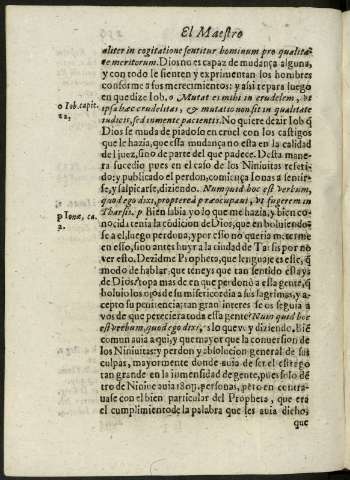 El Maestro
aliter in cogitatione sentitur hominum pro qualita-
te meritorum. Dios no es capaz de mudança alguna,
y con todo le sienten y exprimentan los hombres
conforme a sus merecimientos: y assi repara luego
en que dize Iob. o Mutet es mihi in crudelem, vt
o Iob. capit.
ipsa hæc crudelitas, & mutatio non sit in qualitate
22,
iudicis, sed in mente pacientis. No quiere dezir Iob q̃
Dios se muda de piadoso en cruel con los castigos
que le hazia, que essa mudança no esta en la calidad
del juez, sino de parte del que padece. Desta mane-
ra sucedio pues en el caso de los Niniuitas referi-
do: y publicado el perdon, començà Ionas a sentir-
se, y salpicarse, diziendo. Nunquid hoc est verbum,
quod ego dixi, propterea præocupaui, vt fugerem in
Tharsis. p Bien sabia yo lo que me hazia, y bien co-
p Ionæ, ca.
nocida tenia la cõdicion de Dios, que en boluiendo-
2.
se a el, luego perdona, y por esso no queria meterme
en esso, sino antes huyr a la ciudad de Tarsis por no
ver esto. Dezidme Propheto, que lenguaje es esse, q̃
modo de hablar, que teneys que tan sentido estays
de Dios? topa mas de en que perdonò a essa gente, q̃
boluio los ojos de su misericordia a sus lagrimas, y a-
cepto su penitencia; tan gran interes se os seguia a
vos de que pereciera toda essa gente? Nunquid hoc
est verbum, quod ego dixi, lo que vey diziendo. Biẽ
comun auia aqui, y que mayor que la conuersion de
los Niniuitas: y perdon y absolucion general de sus
culpas, mayormente donde auia de ser el estrago
tan grande en la inmensidad de gente, pues solo dẽ
tro de Niniue auia personas, pero en contra-
uase con el bien particular del Propheta, que era
el cumplimiento de la palabra que les auia dicho,
que